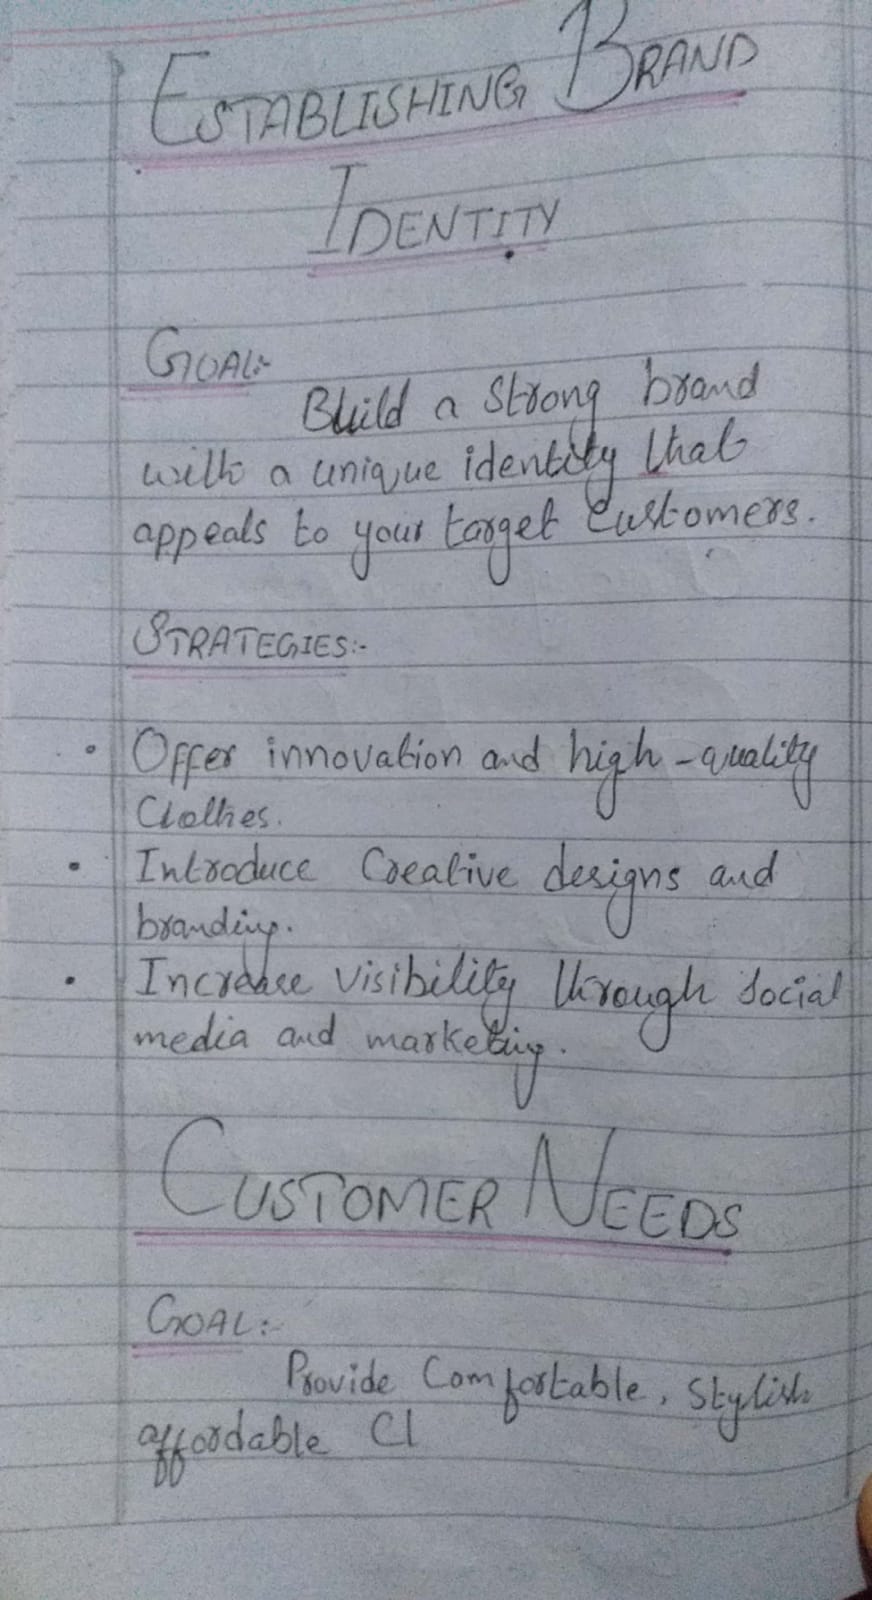 ESTABLISHING BRAND
IDENTITY
GOAL:-
Build a strong brand
with a unique identity that
appeals to your target customers.
STRATEGIES:-
• Offer innovation and high-quality
Clothes.
• Introduce Creative designs and
branding.
• Increase visibility through social
media and marketing.
CUSTOMER NEEDS
GOAL:-
Provide Comfortable, Stylish
affordable Cl